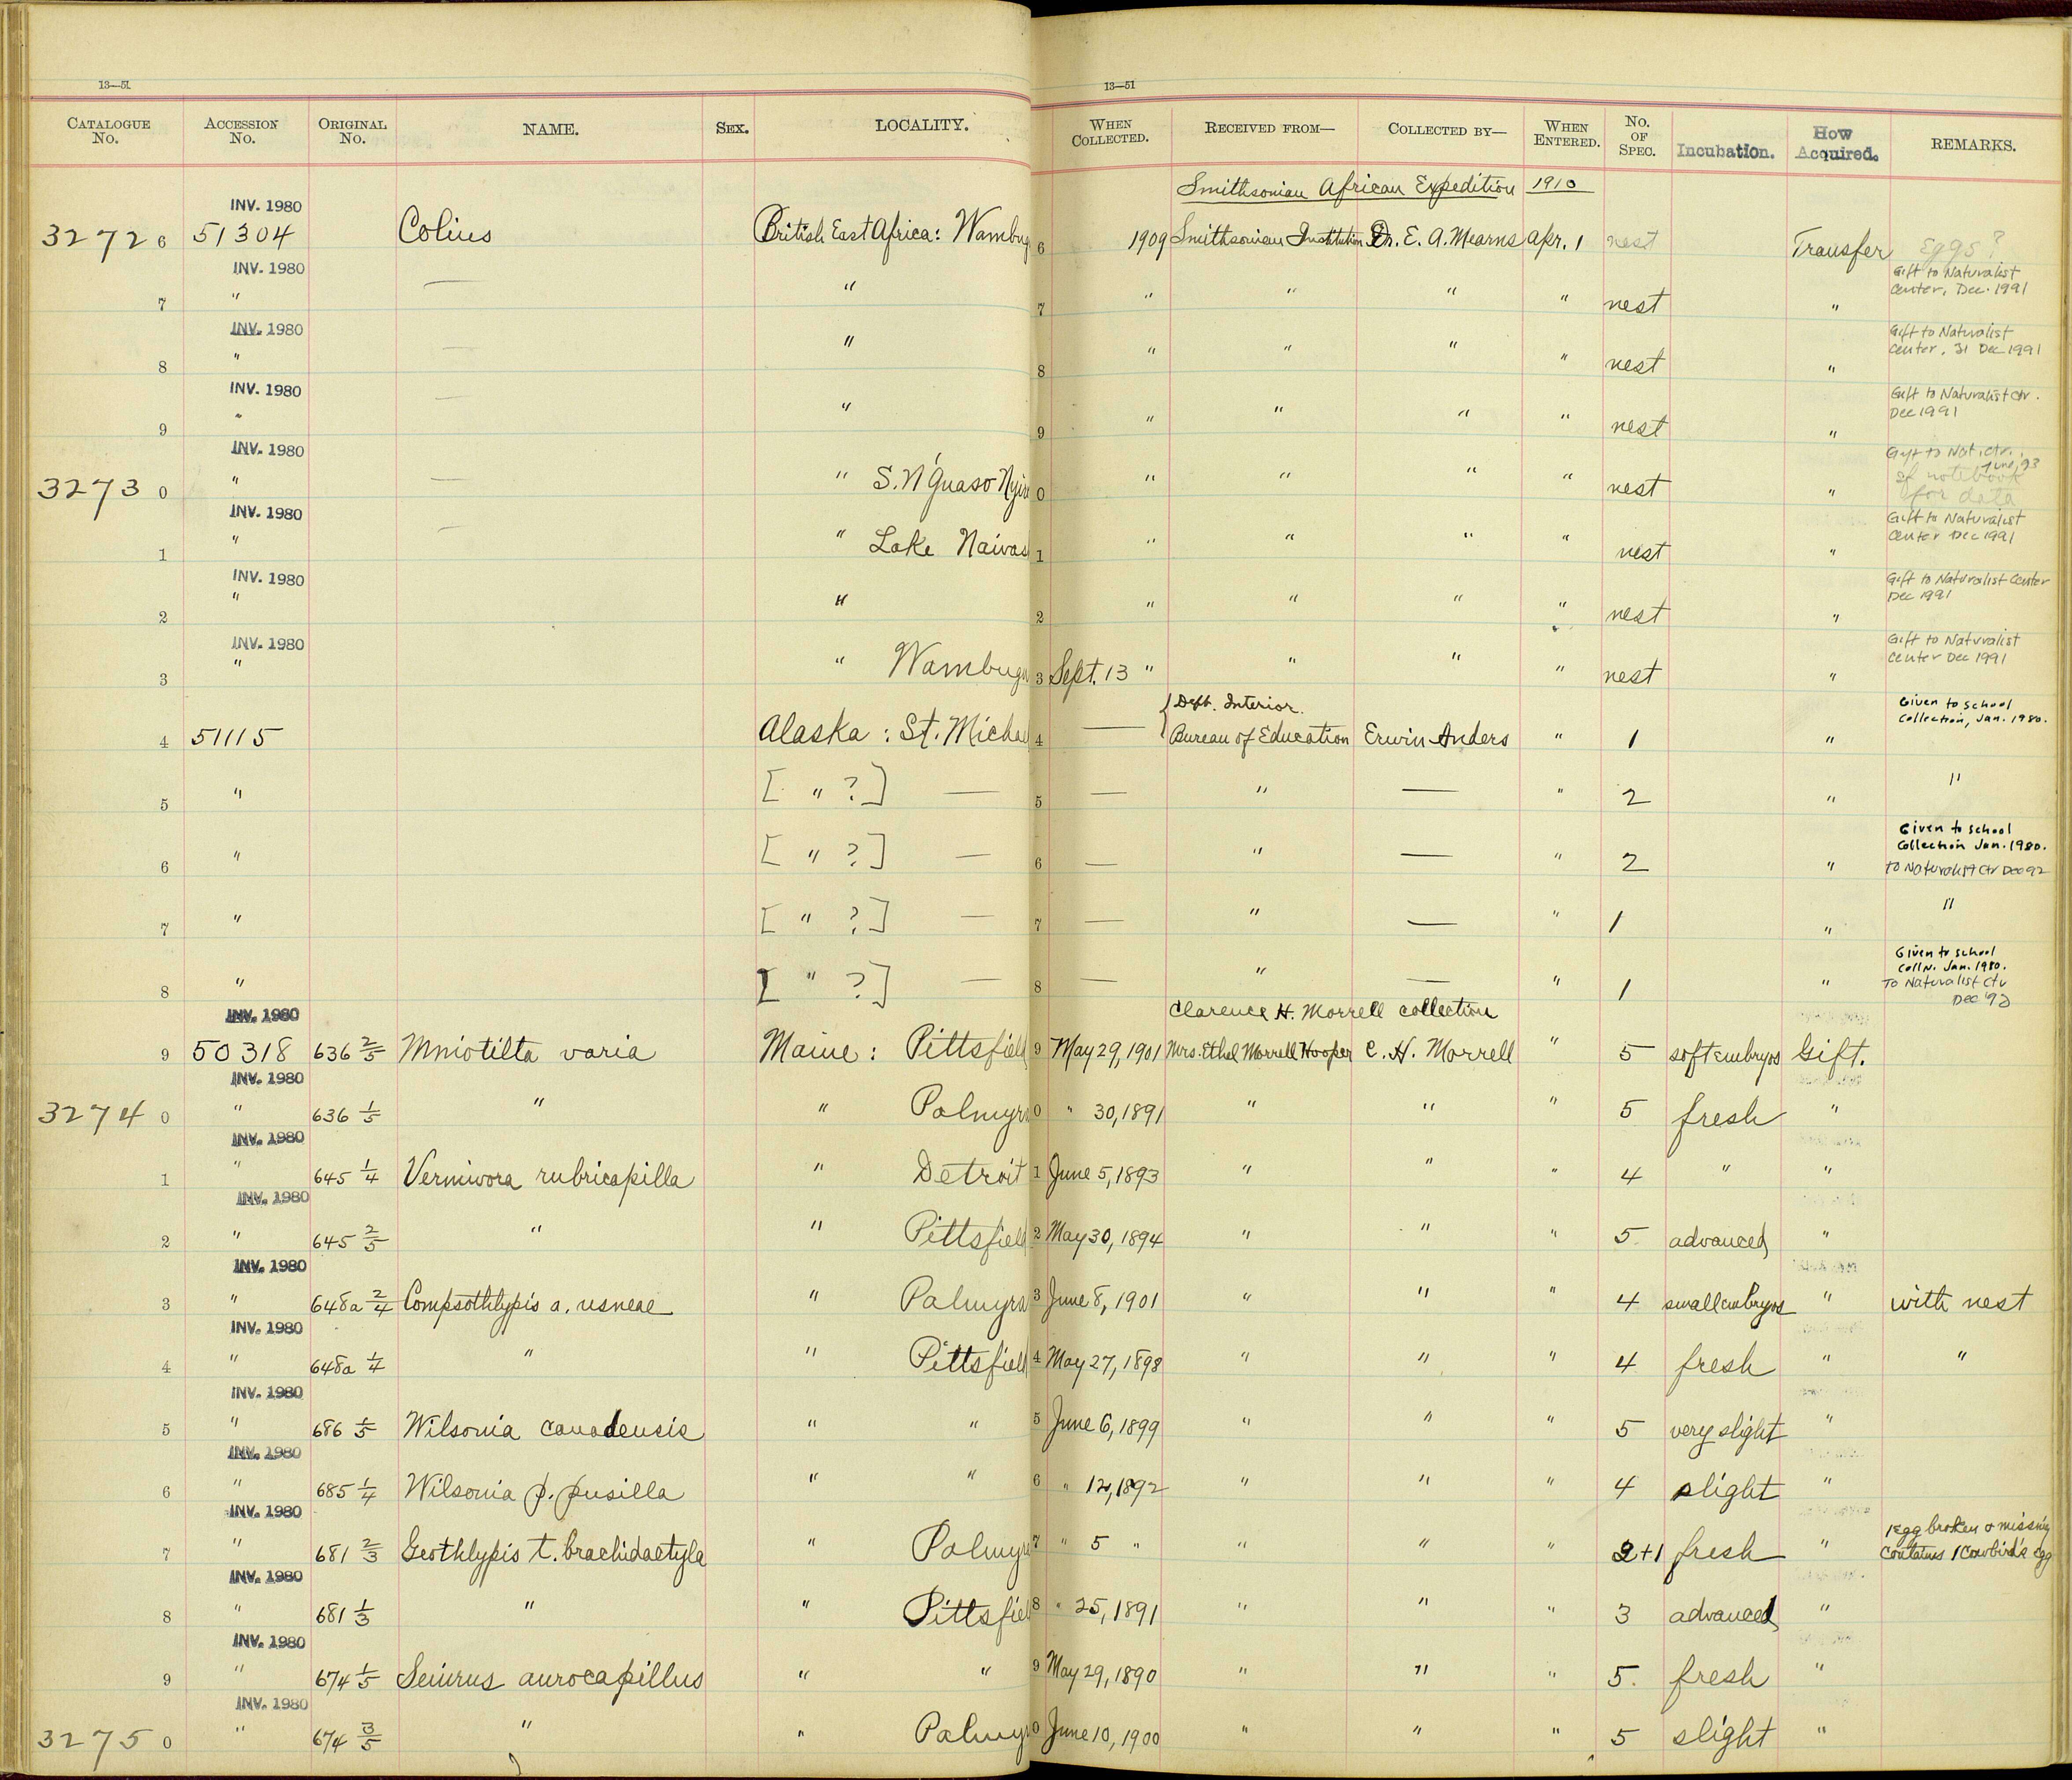 13—51 13—51
CATALOGUE No. ACCESSION No. ORIGINAL No. NAME. SEX. LOCALITY. WHEN COLLECTED. RECEIVED FROM— COLLECTED BY— WHEN ENTERED. No. OF SPEC. Incubation. How Acquired. REMARKS.
Smithsonian African Expedition 1910
INV. 1980
3272 6 51304 Colius British East Africa: Wambug 6 1909 Smithsonian Institution Dr. E. A. Mearns Apr. 1 nest Transfer Eggs?
INV. 1980 Gift to Naturalist
7 " — " 7 " " " " nest " Center, Dec. 1991
INV. 1980 Gift to Naturalist
8 " — " 8 " " " " nest " Center, 31 Dec 1991
INV. 1980 Gift to Naturalist Ctr.
9 " — " 9 " " " " nest " Dec 1991
INV. 1980 Gift to Nat. Ctr., June, 93
3273 0 " — " S. N'Guaso Nyir 0 " " " " nest " notebook
for data
INV. 1980 Gift to Naturalist
1 " — " Lake Naivas 1 " " " " nest " Center Dec 1991
INV. 1980 Gift to Naturalist Center
2 " " 2 " " " " nest " Dec 1991
INV. 1980 Gift to Naturalist
3 " " Wambug 3 Sept. 13 " " " " nest " Center Dec 1991
{Dept. Interior. Given to school
4 51115 Alaska : St. Michae 4 — Bureau of Education Erwin Anders " 1 " Collection, Jan. 1980.
5 " [ " ?] — 5 — " — " 2 " "
Given to school
Collection Jan. 1980.
6 " [ " ?] — 6 — " — " 2 " To Naturalist Ctr Dec 92
7 " [ " ?] — 7 — " — " 1 " "
Given to school
Colln. Jan. 1980.
8 " [ " ?] — 8 — " — " 1 " To Naturalist Ctr
Dec '92
INV. 1980 Clarence H. Morrell collection
9 50318 636 2/5 Mniotilta varia Maine : Pittsfield 9 May 29, 1901 Mrs. Ethel Morrell Hooper C. H. Morrell " 5 soft embryos Gift.
INV. 1980
3274 0 " 636 1/5 " " Palmyra 0 " 30, 1891 " " " 5 fresh "
INV. 1980
1 " 645 1/4 Vermivora rubricapilla " Detroit 1 June 5, 1893 " " " 4 " "
INV. 1980
2 " 645 2/5 " " Pittsfield 2 May 30, 1894 " " " 5 advanced "
INV. 1980
3 " 648a 2/4 Compsothlypis a. usneae " Palmyra 3 June 8, 1901 " " " 4 small embryos " with nest
INV. 1980
4 " 648a 1/4 " " Pittsfield 4 May 27, 1898 " " " 4 fresh " "
INV. 1980
5 " 686 1/5 Wilsonia canadensis " " 5 June 6, 1899 " " " 5 very slight "
INV. 1980
6 " 685 1/4 Wilsonia p. pusilla " " 6 " 12, 1892 " " " 4 slight "
INV. 1980 1 egg broken & missing
7 " 681 2/3 Geothlypis t. brachidactyla " Palmyra 7 " 5 " " " " 2+1 fresh " Contains 1 Cowbird's egg
INV. 1980
8 " 681 1/3 " " Pittsfiel 8 " 25, 1891 " " " 3 advanced "
INV. 1980
9 " 674 1/5 Seiurus aurocapillus " " 9 May 29, 1890 " " " 5. fresh "
INV. 1980
3275 0 " 674 3/5 " " Palmyr 0 June 10, 1900 " " " 5 slight "